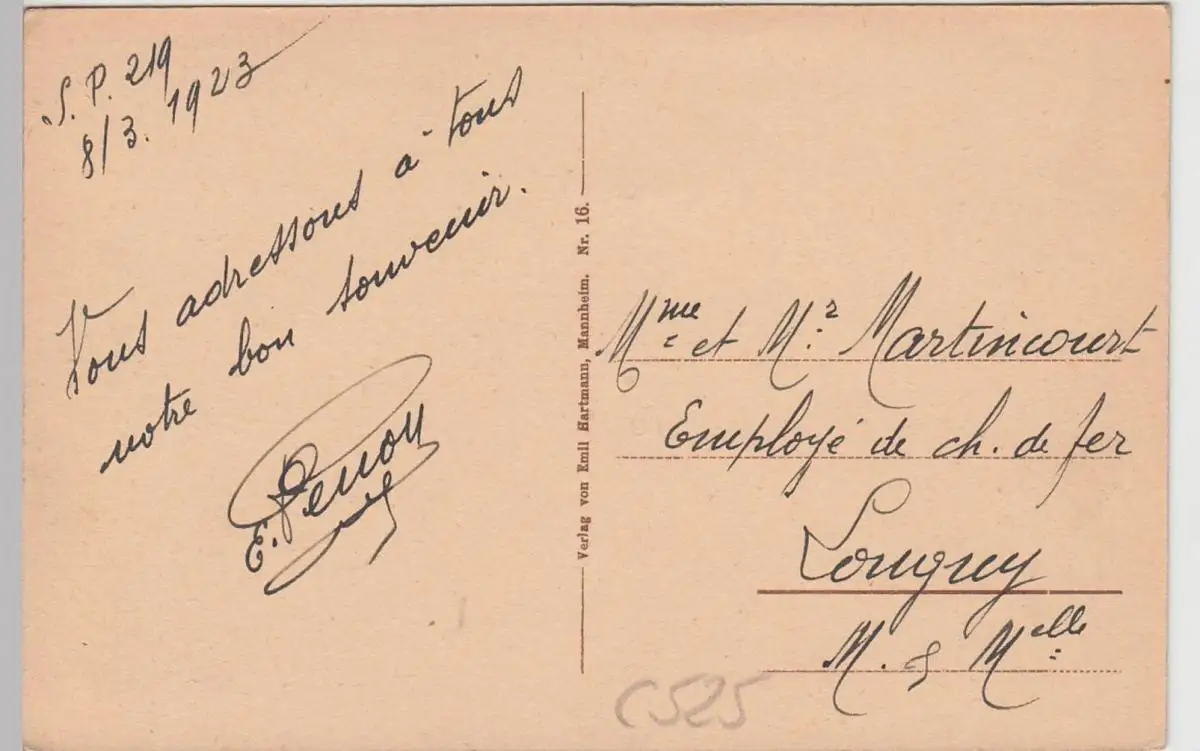 S. P. 219
8/3. 1923
Vous adressons à tous
notre bon souvenir.
E.
Verlag von Emil Hartmann, Mannheim. Nr. 16.
Mme et Mr Martincourt
Employé de ch. de fer
Longuy
M. & Mlle
C525